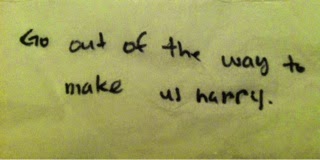 Go out of the way to
make us harry.